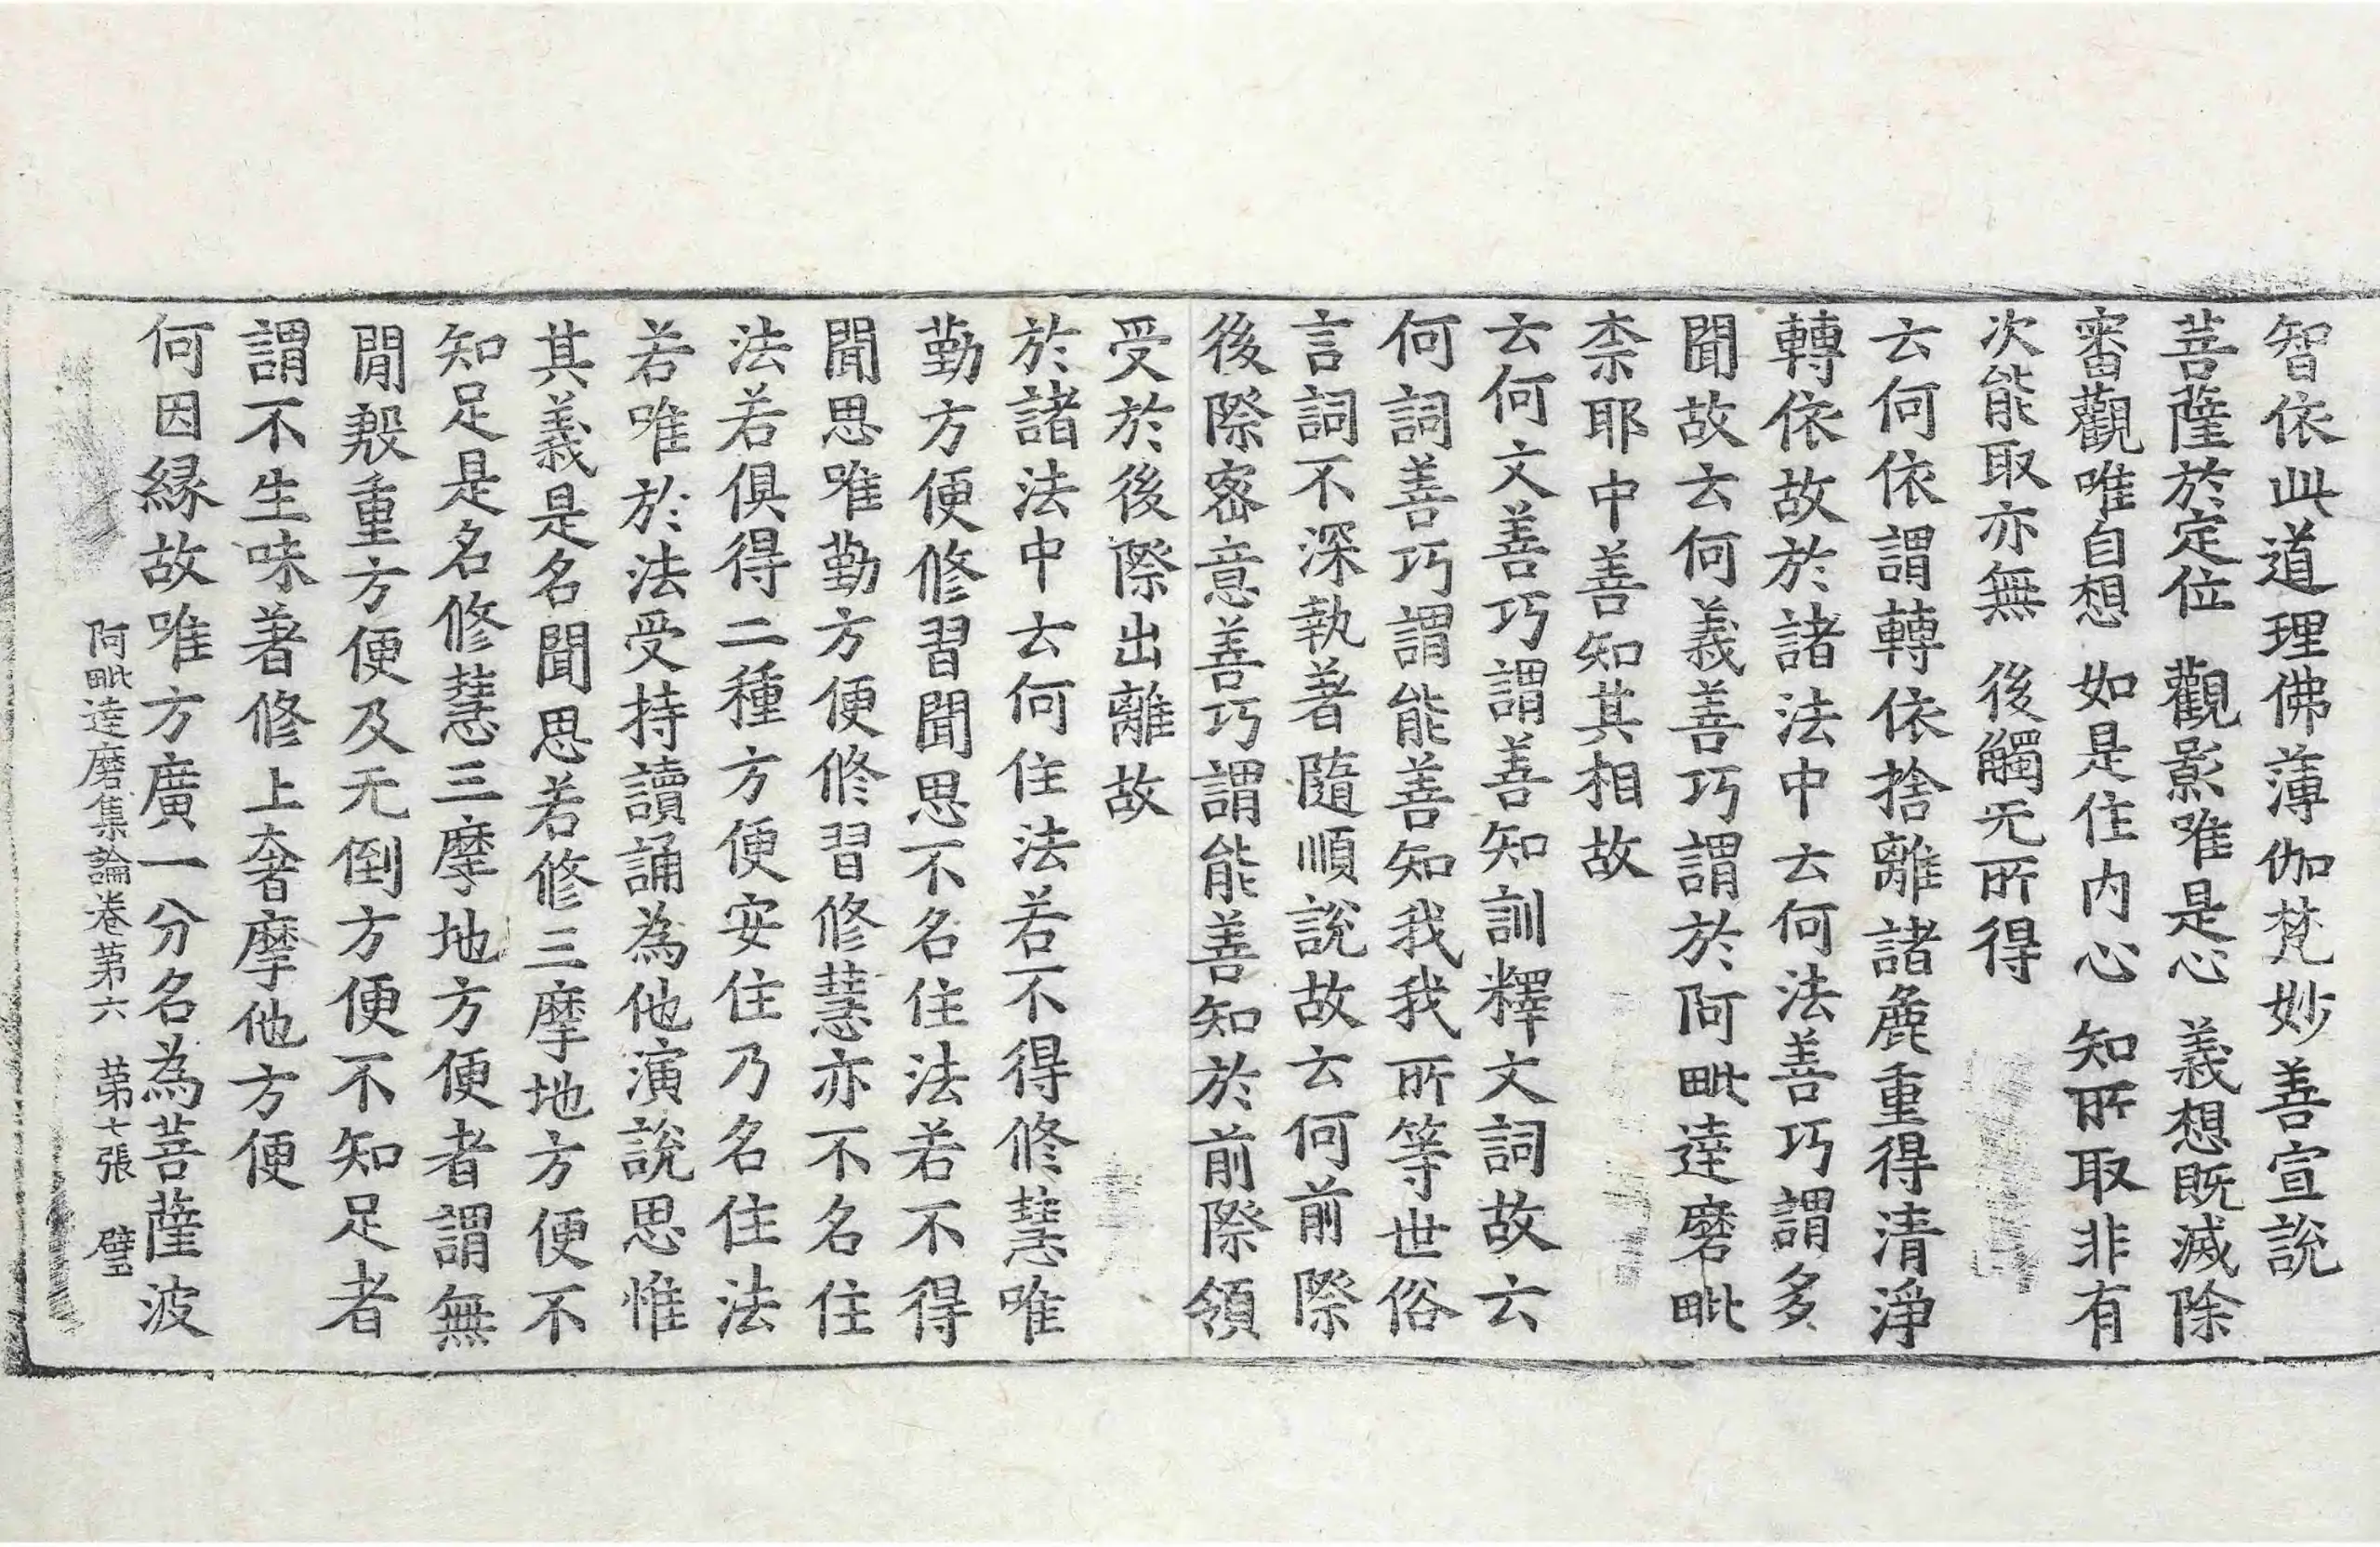 智依此道理佛薄伽梵妙善宣說
菩薩於定位　觀影唯是心　義想旣滅除
審觀唯自想　如是住內心　知所取非有
次能取亦無　後觸无所得
云何依謂轉依捨離諸麁重得清淨
轉依故於諸法中云何法善巧謂多
聞故云何義善巧謂於阿毗達磨毗
柰耶中善知其相故
云何文善巧謂善知訓釋文詞故云
何詞善巧謂能善知我我所等世俗
言詞不深執著隨順說故云何前際
後際密意善巧謂能善知於前際領
受於後際出離故
於諸法中云何住法若不得修慧唯
勤方便修習聞思不名住法若不得
聞思唯勤方便修習修慧亦不名住
法若俱得二種方便安住乃名住法
若唯於法受持讀誦為他演說思惟
其義是名聞思若修三摩地方便不
知足是名修慧三摩地方便者謂無
閒殷重方便及无倒方便不知足者
謂不生味著修上奢摩他方便
何因緣故唯方廣一分名為菩薩波
阿毗達磨集論卷第六　第七張　璧